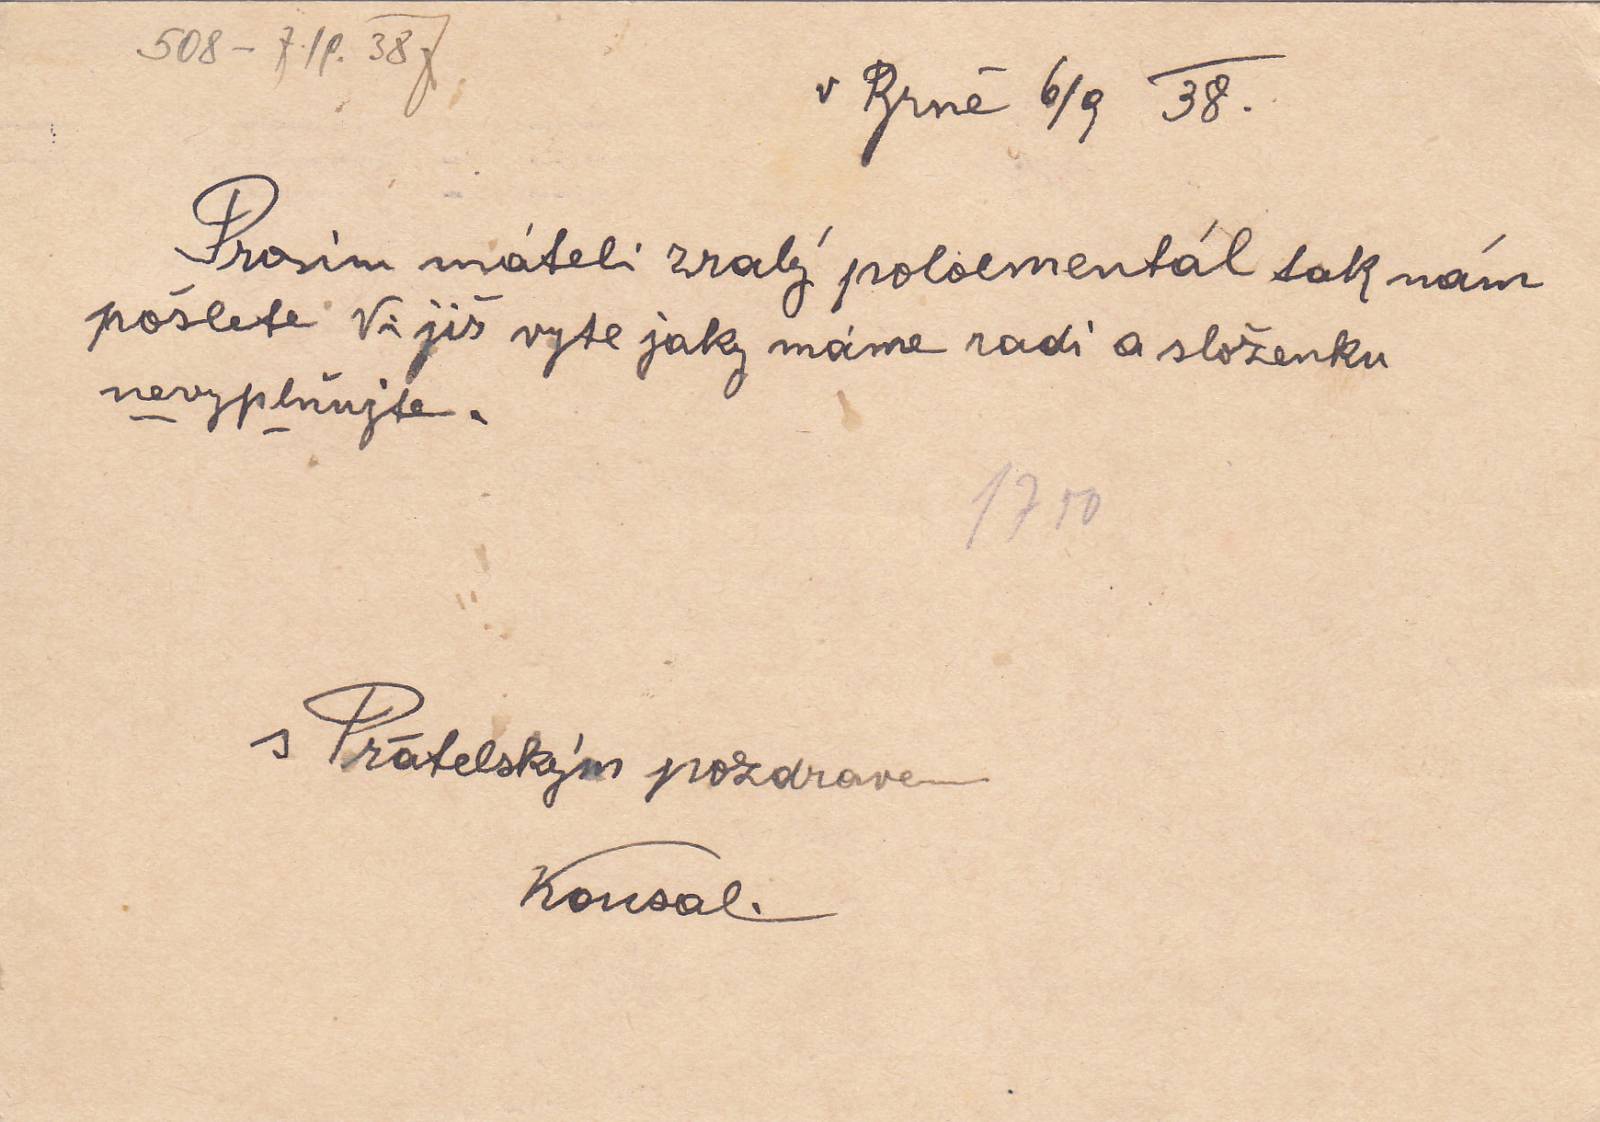 508 – 7./9. 38
v Brně 6/9 38.
Prosim máteli zralý poloementál tak nám
pošlete Vi jiš vyte jaky máme radi a složenku
nevyplňujte.
17 50
s Přátelským pozdravem
Konsal.